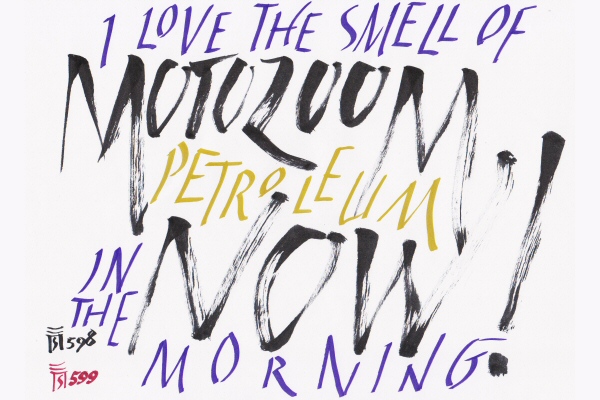 I LOVE THE SMELL OF
MOTOZOOM
PETROLEUM
NOW!
IN
THE
MORNING.
598
599